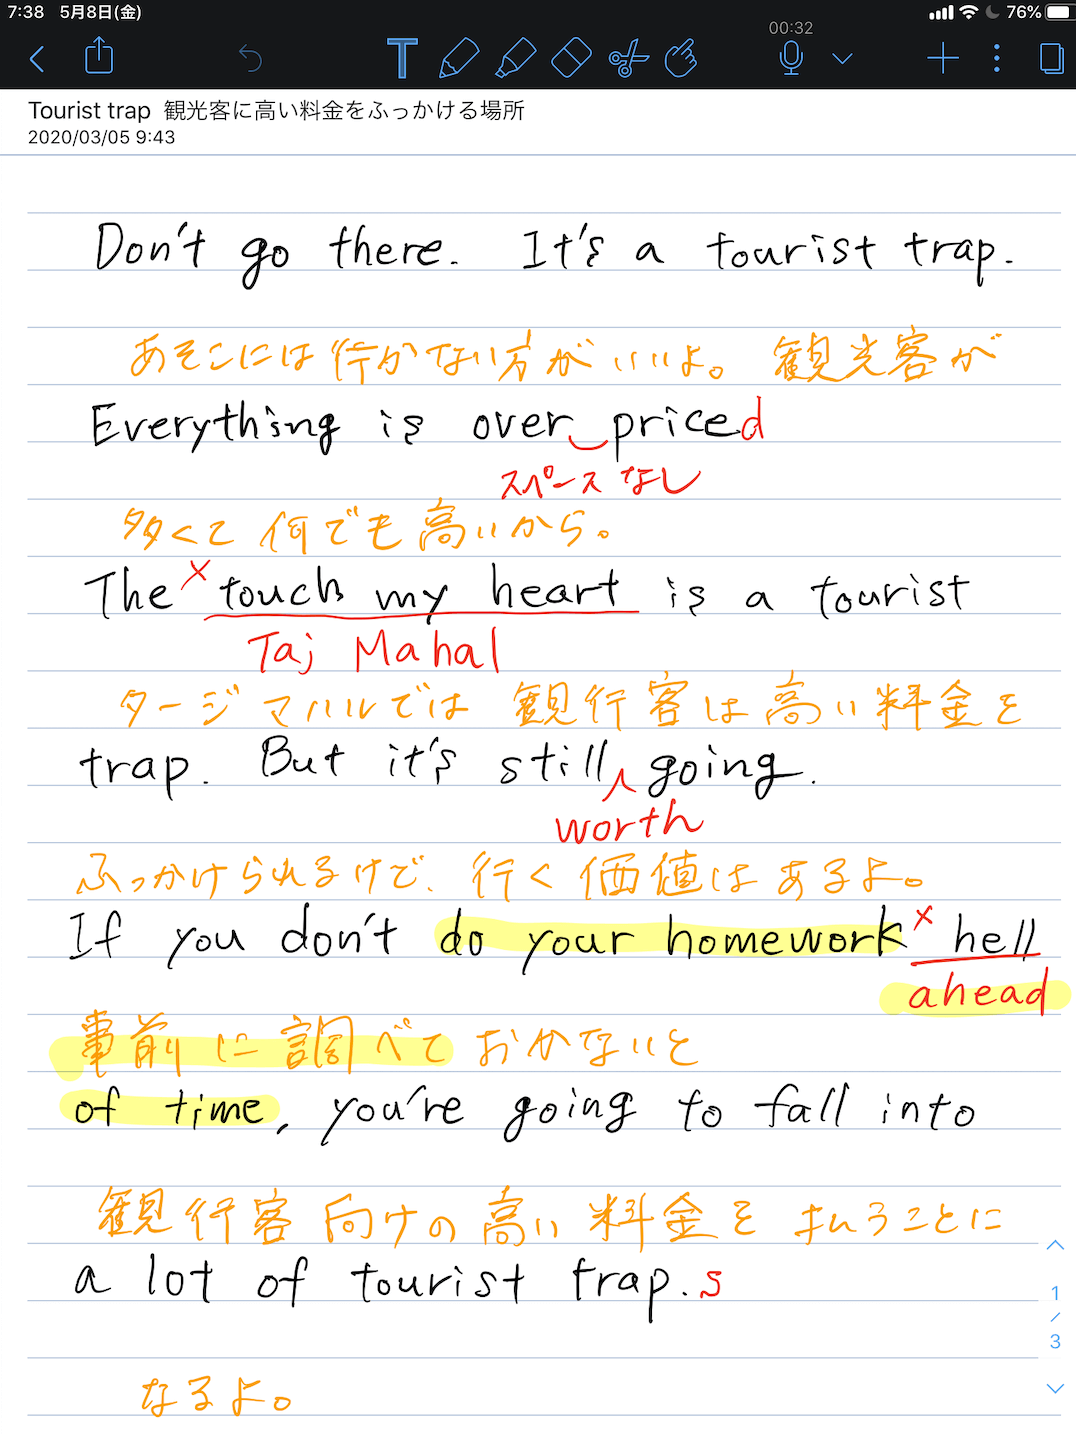 7:38 5月8日(金)
76%
00:32
Tourist trap 観光客に高い料金をふっかける場所
2020/03/05 9:43
Don't go there. It's a tourist trap.
あそこには行かない方がいいよ。観光客が
Everything is over priced
スペースなし
多くて何でも高いから。
The × touch my heart is a tourist
Taj Mahal
タージマハルでは観行客は高い料金を
trap. But it's still going.
worth
ふっかけられるけど、行く価値はあるよ。
If you don't do your homework × hell
ahead
事前に調べておかないと
of time, you're going to fall into
観行客向けの高い料金を払うことに
a lot of tourist trap.s
1
/
3
なるよ。